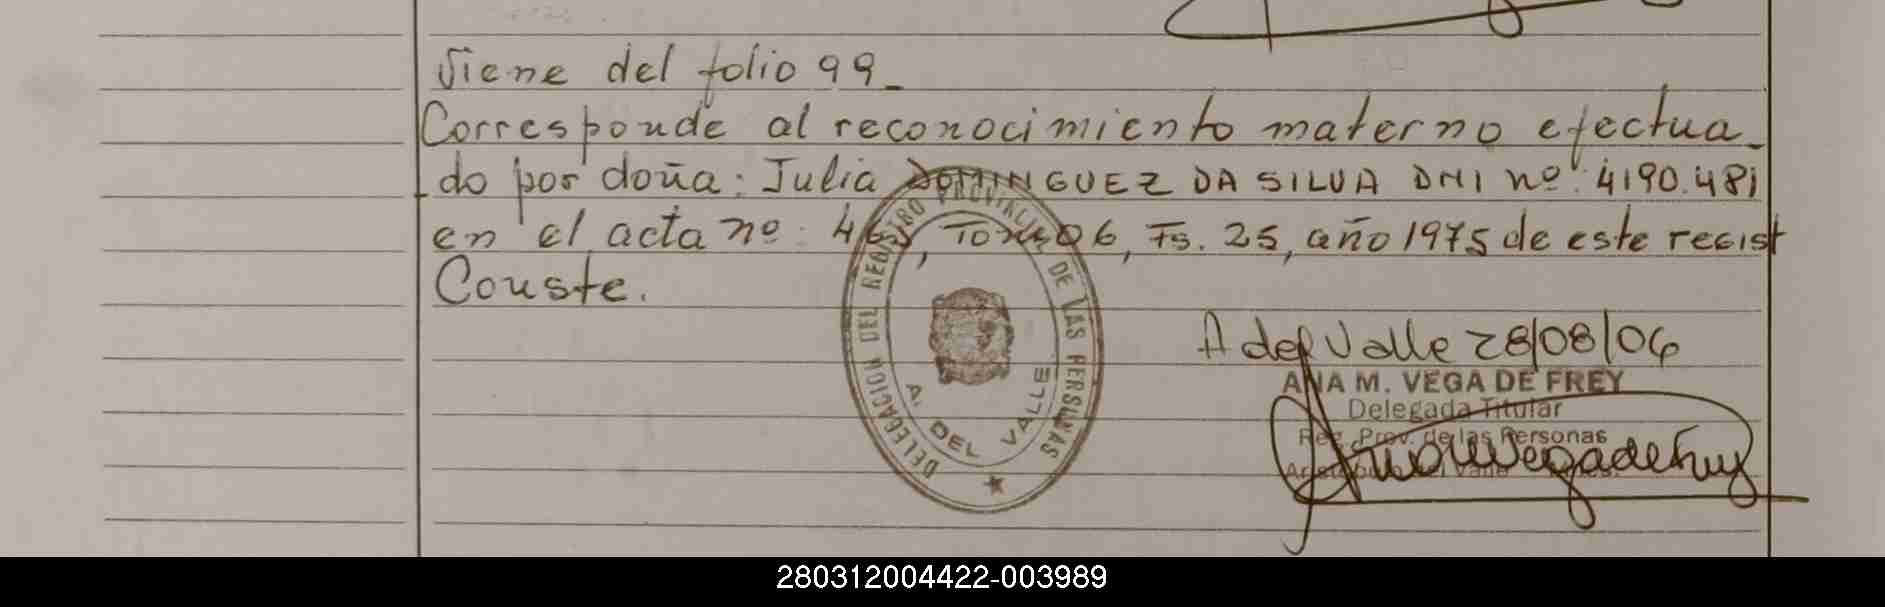 Viene del folio 99_
Corresponde al reconocimiento materno efectua_
do por doña: Julia DOMINGUEZ DA SILVA DNI nº: 4190.481
en el acta nº: 465, Tomo 06, Fs. 25, año 1975 de este regist
Conste.
DELEGACION DEL REGISTRO PROVINCIAL DE LAS PERSONAS
A. DEL VALLE
A del Valle 28/08/06
ANA M. VEGA DE FREY
Delegada Titular
Reg. Prov. de las Personas
280312004422-003989